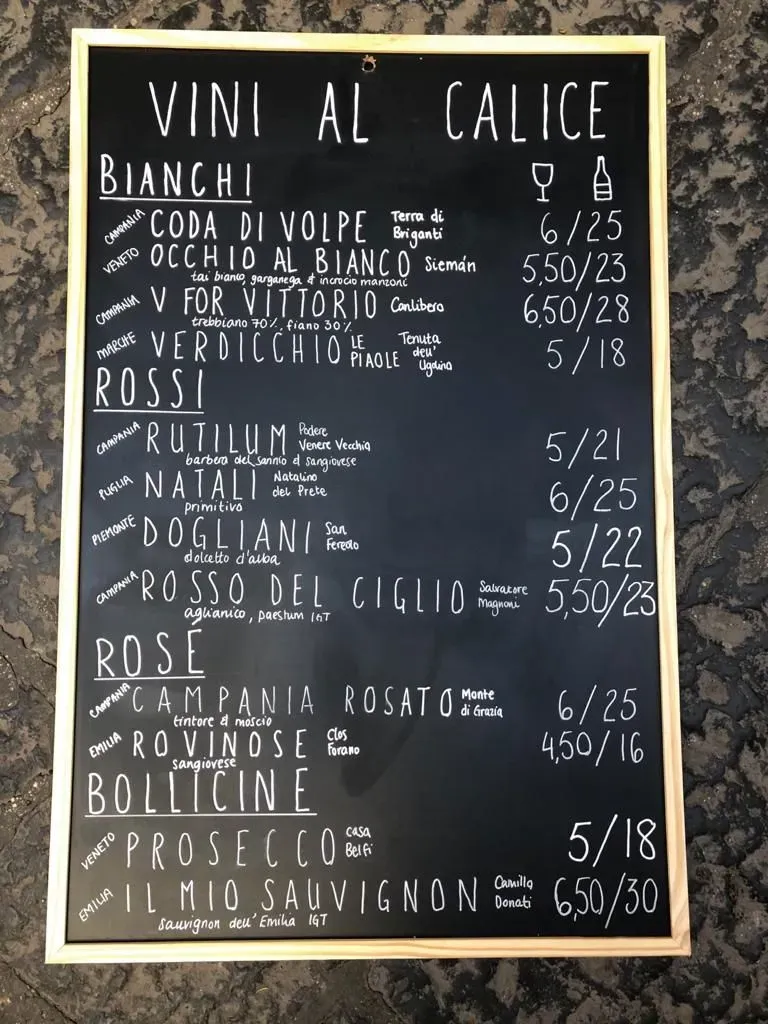 VINI AL CALICE
BIANCHI
CAMPANIA CODA DI VOLPE Terra di Briganti 6/25
VENETO OCCHIO AL BIANCO Siemán 5,50/23
tai bianco, garganega & incrocio manzoni
CAMPANIA V FOR VITTORIO Canlibero 6,50/28
trebbiano 70%, fiano 30%
MARCHE VERDICCHIO LE PIAOLE Tenuta dell' Ugolino 5/18
ROSSI
CAMPANIA RUTILUM Podere Venere Vecchia 5/21
barbera del sannio & sangiovese
PUGLIA NATALI Natalino del Prete 6/25
primitivo
PIEMONTE DOGLIANI San Fereolo 5/22
dolcetto d'alba
CAMPANIA ROSSO DEL CIGLIO Salvatore Magnoni 5,50/23
aglianico, paestum IGT
ROSÉ
CAMPANIA CAMPANIA ROSATO Monte di Grazia 6/25
tintore & moscio
EMILIA ROVINOSE Clos Forano 4,50/16
sangiovese
BOLLICINE
VENETO PROSECCO casa Belfi 5/18
EMILIA IL MIO SAUVIGNON Camillo Donati 6,50/30
sauvignon dell'Emilia IGT